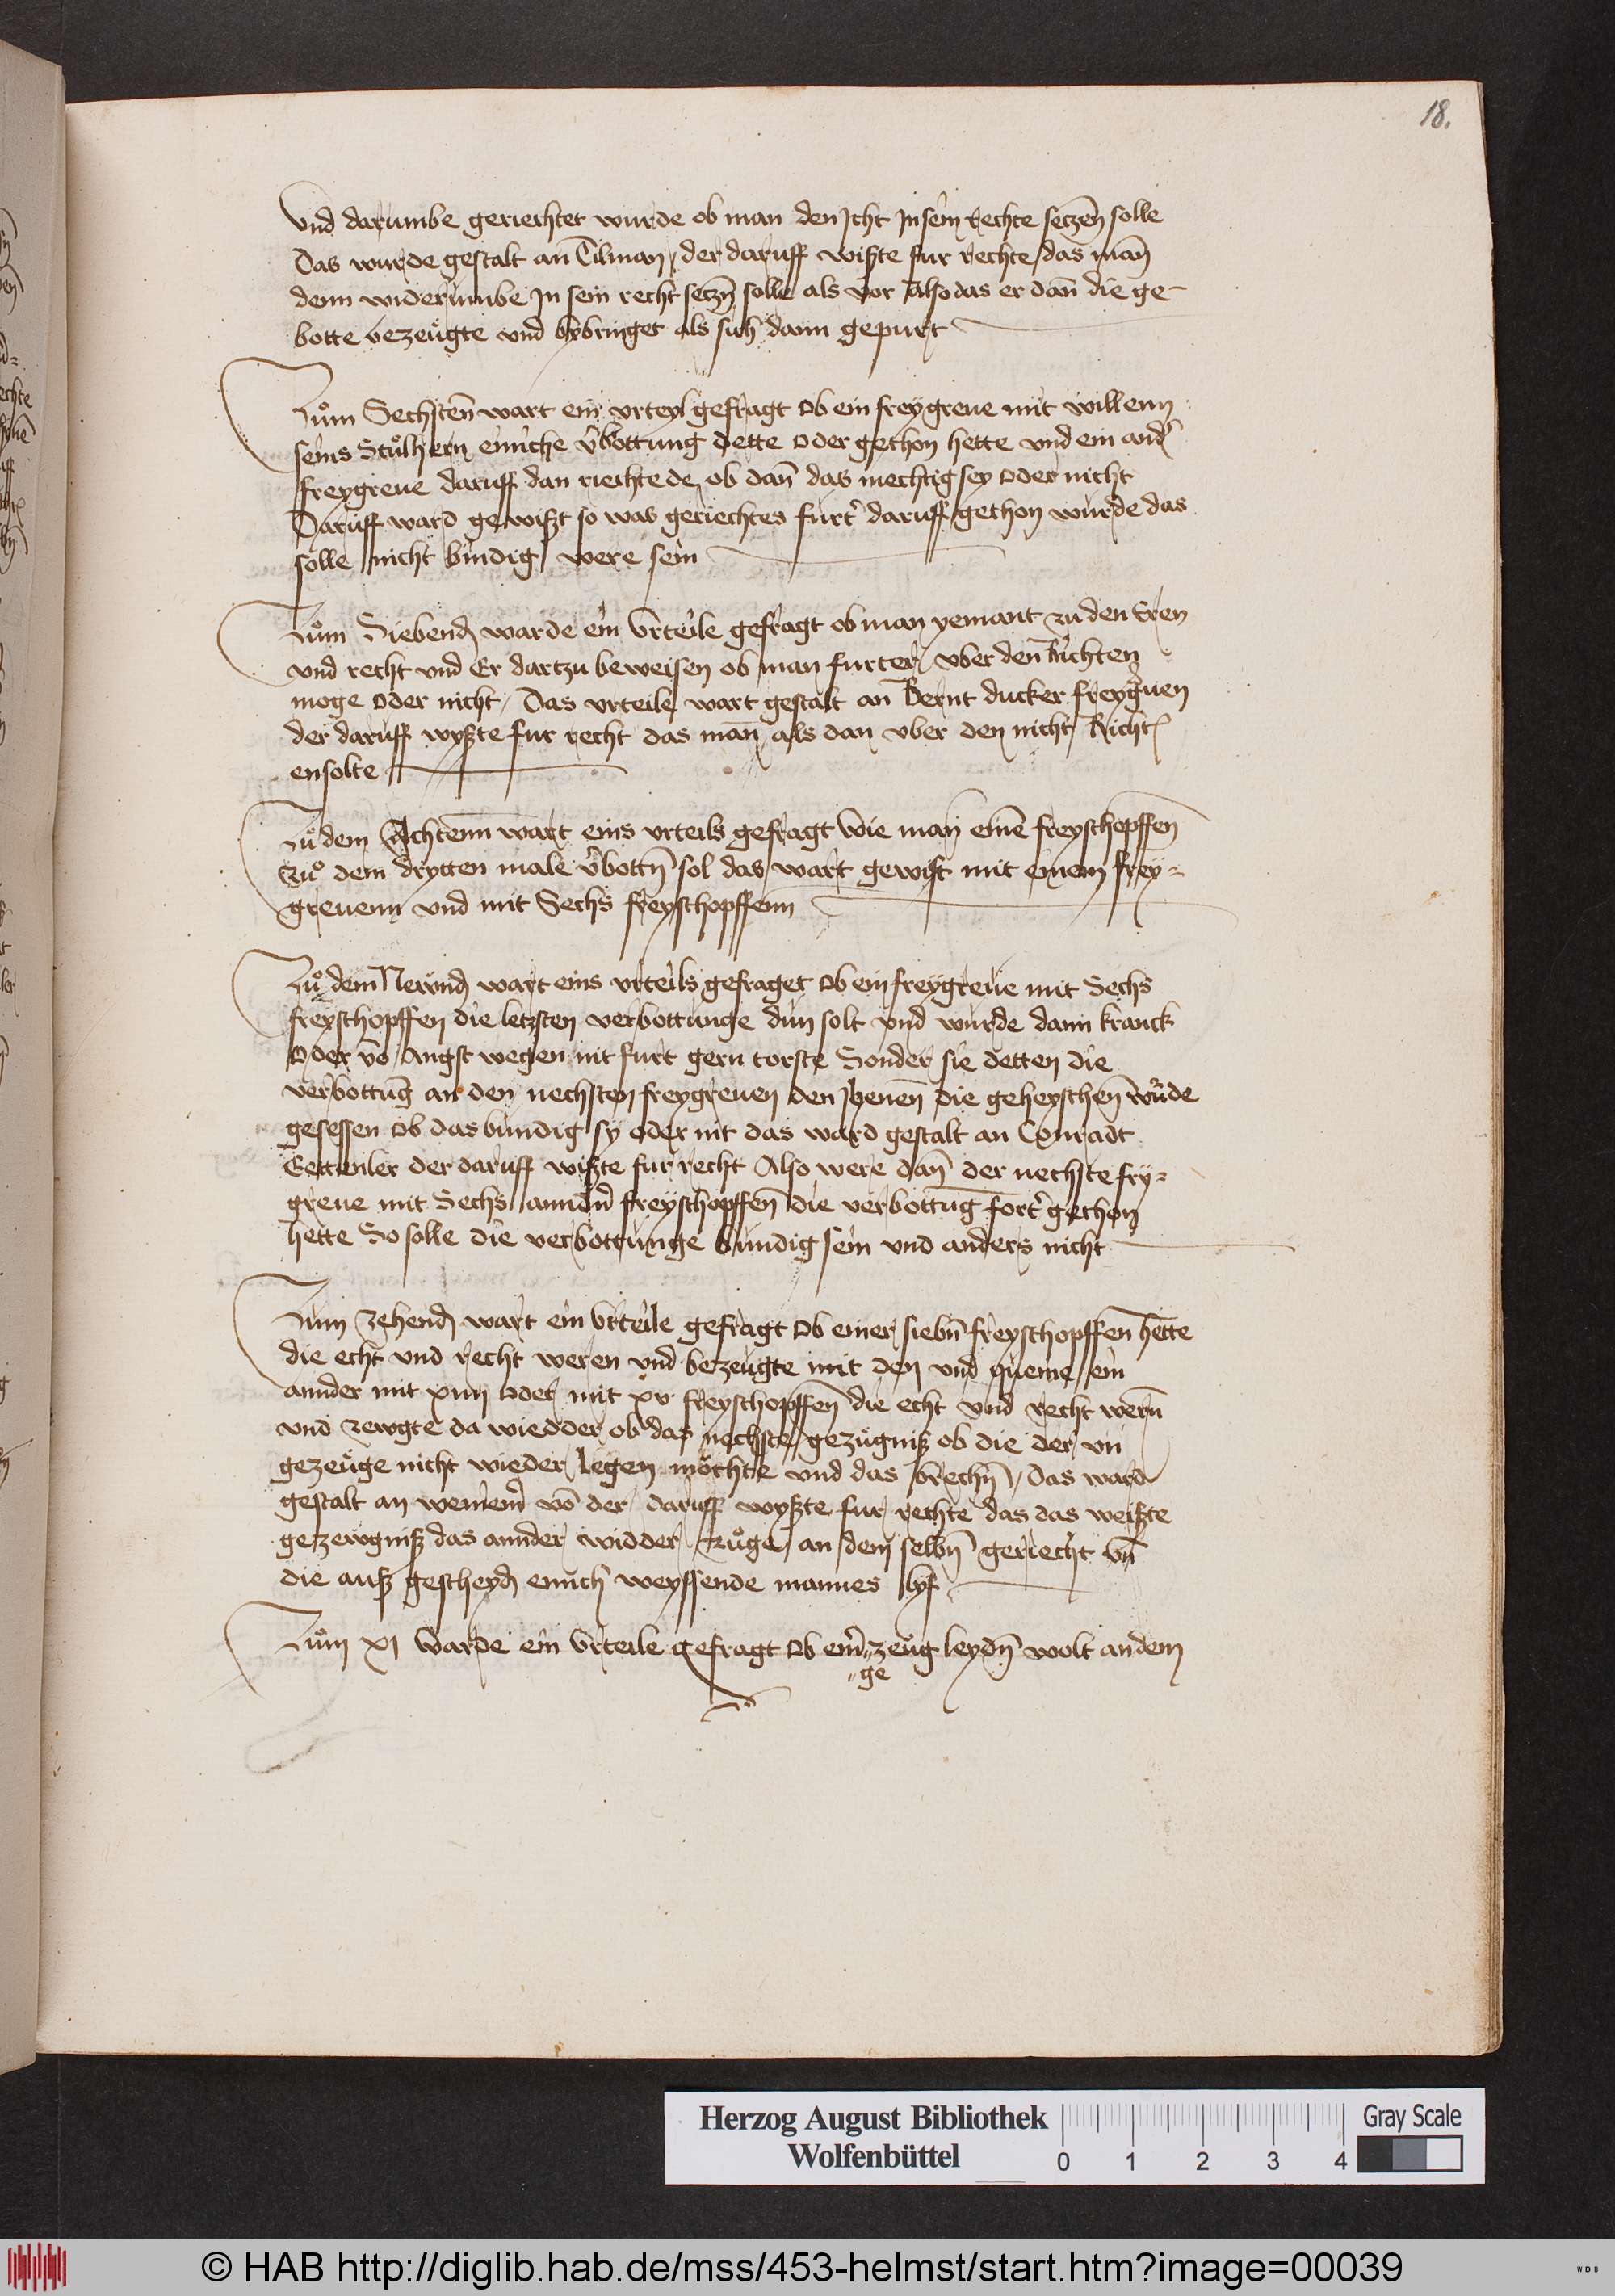 18.
Vnd darumbe geriechtet wurde ob man den Icht In sein Rechte setzen̄ solle
Das wurde gestalt an Tilman / der daruff wißte fur rechte / das man̄
denn widerumbe In sein recht setzn̄ solle als vor Also das er dan̄ die ge-
botte bezeůgte und bybringet als sich dann gepurt
Zům Sechsten̄ wart ein vrteyl gefragt Ob ein freygreue mit willenn
seins Stůlhern einiche v̉bottung dette Oder gethon hette vnd ein and̉
freygreue daruff dan riechtede ob dan̄ das mechtig sey Oder nicht
Daruff ward gewißt so was geriechtes furt̉ daruff gethon wurde das
solle nicht bindig were sein
Zům Siebend warde ein Vrteile gefragt ob man yemant zu den Eren
vnd recht vnd Er dartzu beweisen ob man furter vber den Richten
moge Oder nicht / Das vrteile wart gestalt an Bernt ducker freyg̉uen
der daruff wyßte fur recht das man̄ als dan vber den nicht Richt
ensolte
Zů dem Achtenn wart eins vrteils gefragt wie man eine̅ freyschopffen̄
Zů dem drytten male v̉bottn̄ sol das wart gewist mit einem frey-
greuenn vnd mit Sechs freyschopffenn
Zů dem Newnd wart eins vrteils gefraget Ob ein freygreue mit Sechs
freyschopffen die letzsten verbottunge dun solt vnd wurde dann kranck
Oder vo̅ Angst wegen nit furt gern torste Sonder sie detten die
verbottu̅g an den nechsten freygreuen den Jhenen̄ die geheyschen̄ wůrde
gesessen Ob das bundig sy oder nit das ward gestalt an Conradt
der daruff wißte fur recht Also were dan̄ der nechste fry-
greue mit Sechs anndn̉ freyschopffen̄ die verbottu̅g fort̉ gethon
hette So solle die verbottunge bundig sein vnd anders nicht
Zum Zehend wart ein Vrteile gefragt Ob einer siebn̄ freyschopffen̄ hette
die echt vnd recht weren vnd bezeugte mit den vnd queme ein
annder mit xiiii Oder mit xv freyschopffen̄ die echt vnd recht wern̄
vnd zewgte da wiedder ob das nechste gezůgniß ob die der vn
gezeůge nicht wieder legen möchte vnd das brechn̄ / Das ward
gestalt an vo̅ der daruff wyßte fur rechte das das weißte
gezewgniß das annder widder Zůge an dem selbn̄ geriecht vn̄
die auß gescheyd einich weyssende mannes lyf
Zům xi Warde ein Vrteile gefragt Ob ein̉ zeůg leydn̄ wolt an dem
ge
Herzog August Bibliothek
Wolfenbüttel
0 1 2 3 4
Gray Scale
© HAB http://diglib.hab.de/mss/453-helmst/start.htm?image=00039
WDB